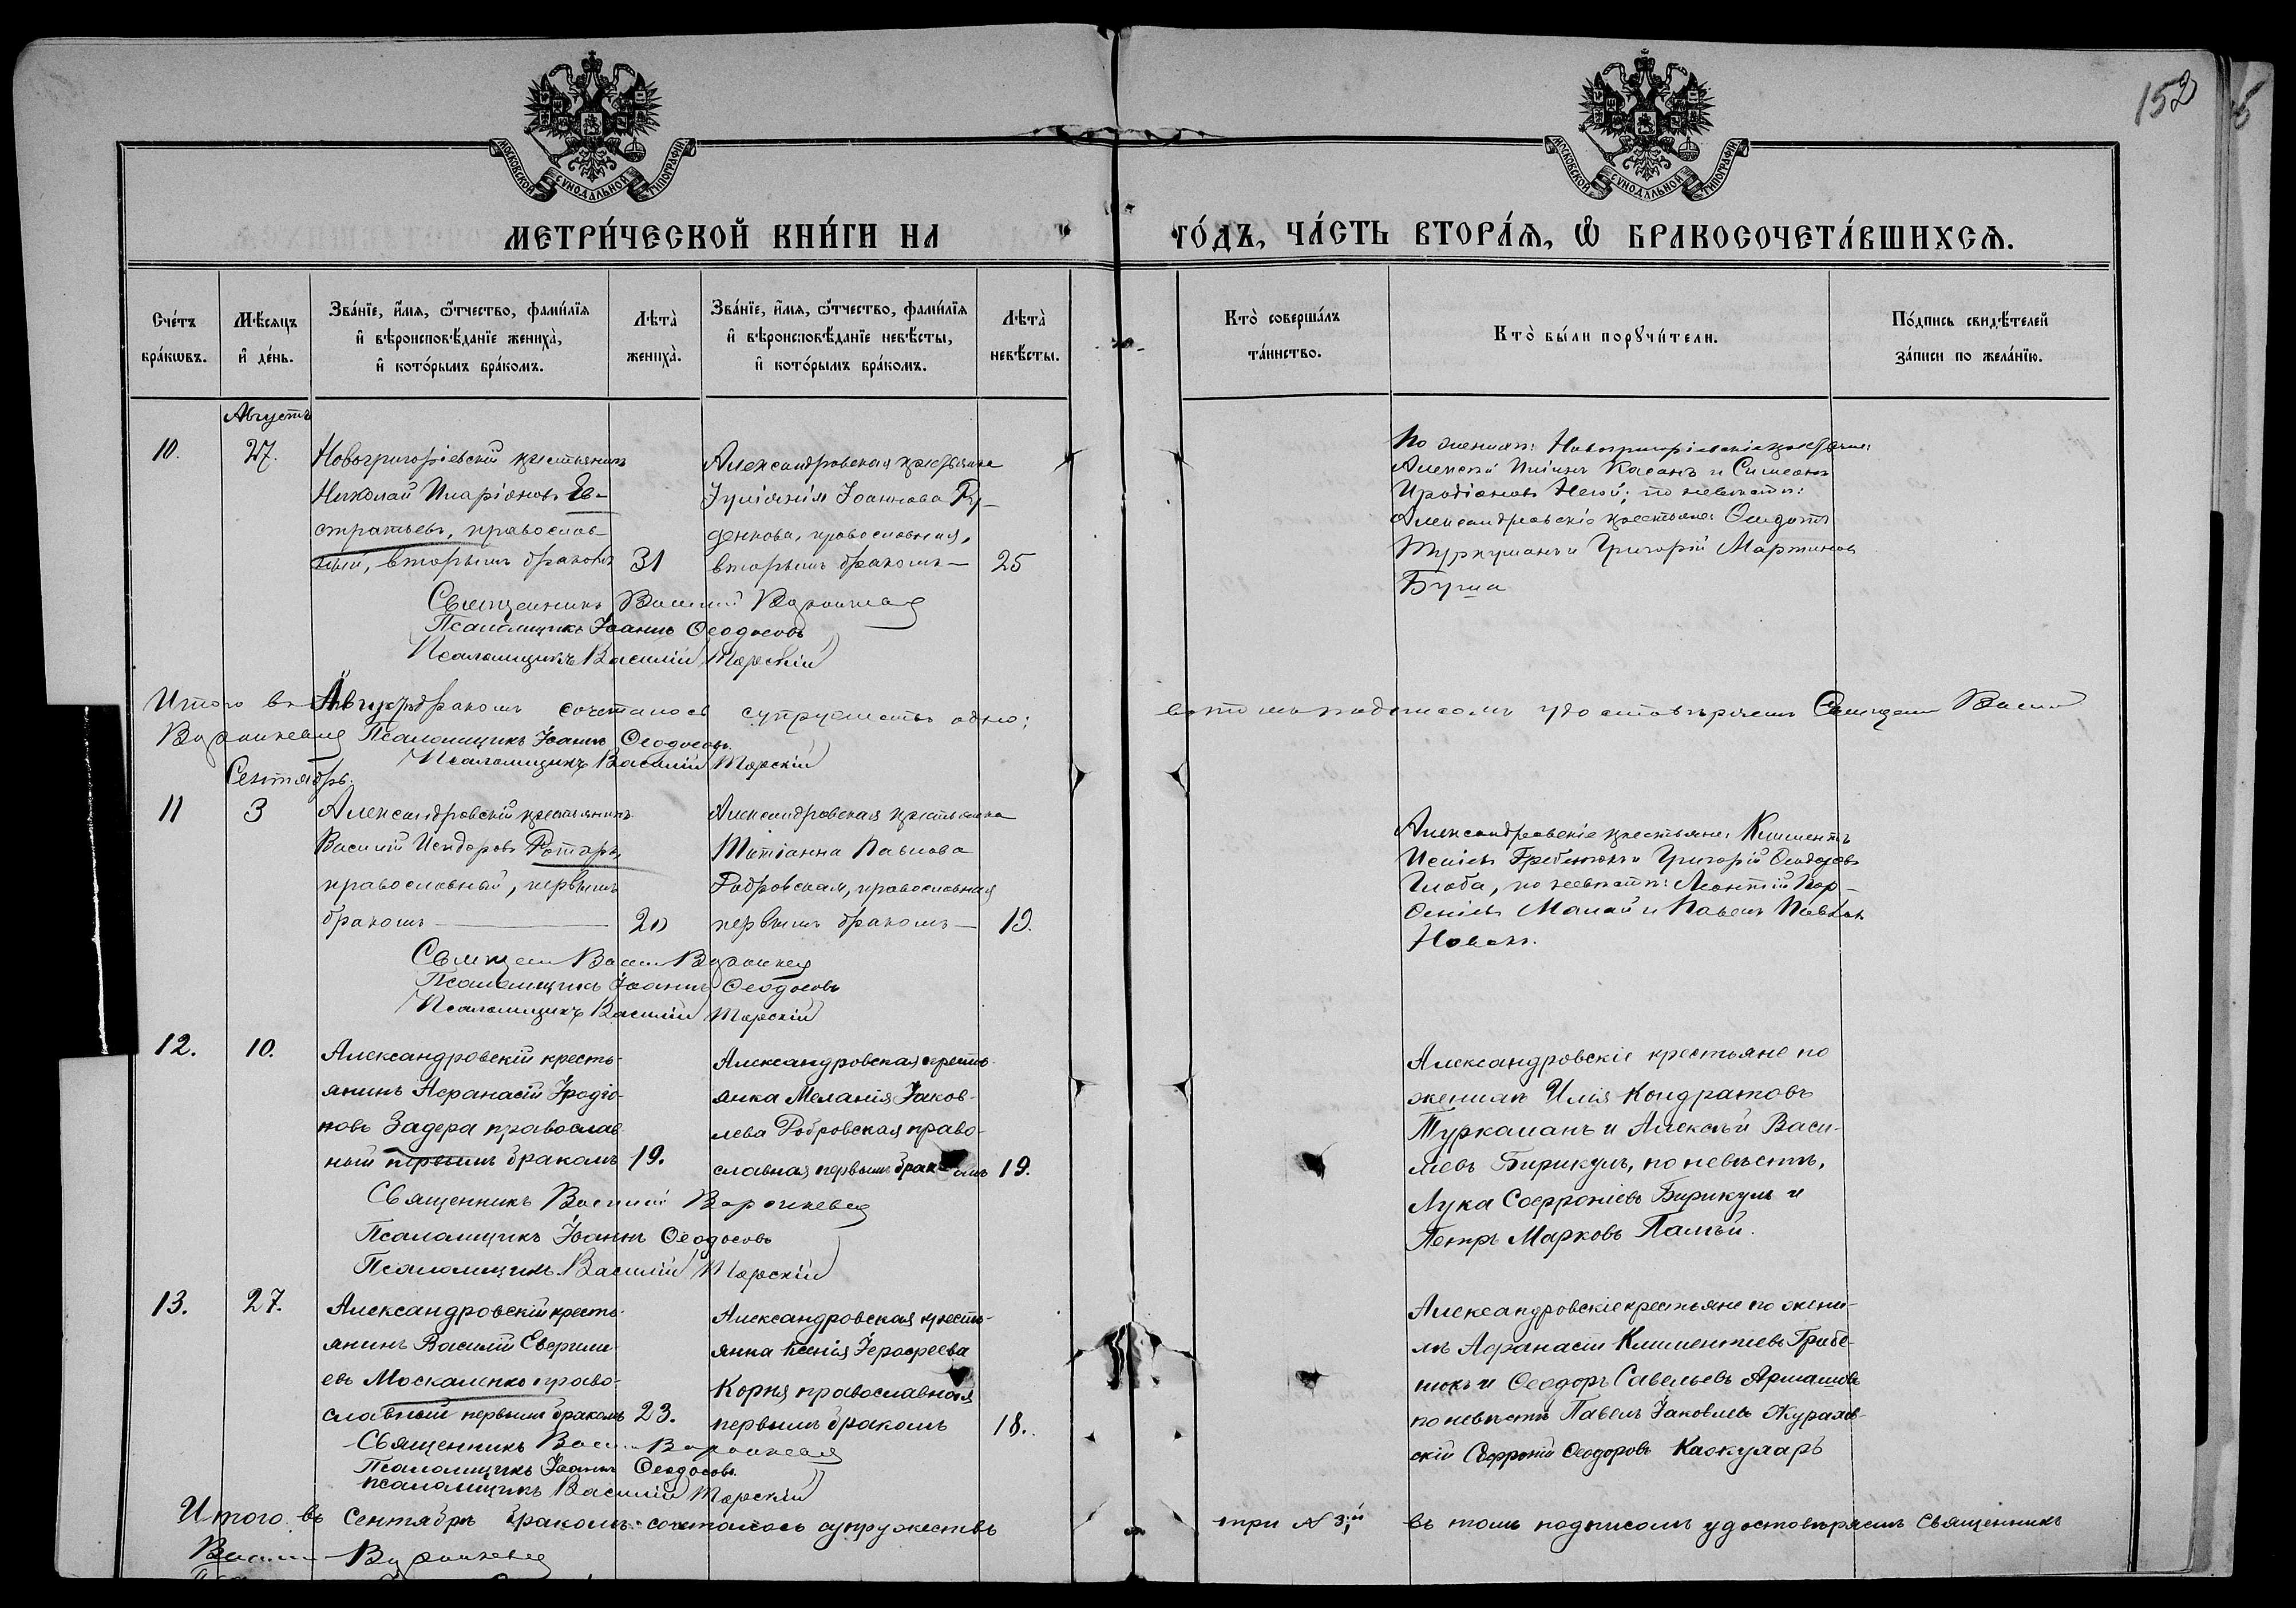 152
МОСКОВСКОЙ СѴНОДАЛЬНОЙ ТИПОГРАФІИ
МОСКОВСКОЙ СѴНОДАЛЬНОЙ ТИПОГРАФІИ
МЕТРИ́ЧЕСКОЙ КНИ́ГИ НА ГО́ДЪ, ЧА́СТЬ ВТОРА́Ѧ, Ѡ БРАКОСОЧЕТА́ВШИХСѦ.
Сче́тъ бра́кωвъ.
Мѣ́сяцъ и҆ де́нь.
Зва́нїе, и҆́мя, ѻ҆́тчество, фами́лїя
и҆ вѣроисповѣ́данїе жениха̀,
и҆ кото́рымъ бра́комъ.
Лѣта̀ жениха̀.
Зва́нїе, и҆́мя, ѻ҆́тчество, фами́лїя
и҆ вѣроисповѣ́данїе невѣ́сты,
и҆ кото́рымъ бра́комъ.
Лѣта̀ невѣ́сты.
Кто̀ соверша́лъ та́инство.
Кто̀ бы́ли порꙋчи́тели.
По́дпись свидѣ́телей за́писи по жела́нїю.
Августъ
10. 27.
Новогригоріевскій крестьянинъ
Николай Иларіоновъ Ев-
стратьевъ, православ-
ный, вторымъ бракомъ 31
Александровская крестьянка
Іуліанія Іоаннова
денкова, православная,
вторымъ бракомъ — 25
По женихѣ: Новогригоріевскіе крестьяне:
Алексѣй и Симеонъ
Иродіоновъ по невѣстѣ:
Александровскіе крестьяне: Ѳеодотъ
Туркуманъ и Григорій Мартиновъ
Священникъ Василій
Псаломщикъ Іоаннъ Ѳеодосовъ
Псаломщикъ Василій Торскій
Итого въ Августѣ бракомъ сочеталось супружество одно;
въ томъ подписомъ удостовѣряемъ Священ Васил
Псаломщикъ Іоаннъ Ѳеодосовъ
Псаломщикъ Василій Торскій
Сентябрь.
11 3
Александровскій крестьянинъ
Василій Исидоровъ Ротарь,
православный, первымъ
бракомъ — 20
Александровская крестьянка
Татіанна Павлова
Добровская, православная
первымъ бракомъ — 19.
Александровскіе крестьяне: Климентъ
Григорій Ѳеодоровъ
Глоба, по невѣстѣ: Леонтій Пор-
фиріевъ Малай и Павелъ
Священ Васил
Псаломщикъ Іоаннъ Ѳеодосовъ
Псаломщикъ Василій Торскій
12. 10.
Александровскій кресть-
янинъ Аѳанасій Іродіо-
новъ Задера православ-
ный первымъ бракомъ 19.
Александровская кресть-
янка Меланія Іаков-
лева Добровская право-
славная первымъ бракомъ 19.
Александровскіе крестьяне по
женихѣ Илія Кондратовъ
Туркаманъ и Алексѣй Васи-
лiевъ Бирикулъ, по невѣстѣ,
Лука Софроніевъ Бирикулъ и
Петръ Марковъ Палѣй.
Священникъ Василій
Псаломщикъ Іоаннъ Ѳеодосовъ
Псаломщикъ Василій Торскій
13. 27.
Александровскій кресть-
янинъ Василій Евфиміи-
евъ Москаленко право-
славный первымъ бракомъ 23.
Александровская кресть-
янка Ксенія Іерофеева
Корня православная
первымъ бракомъ 18.
Александровскіе крестьяне по жени-
хѣ Афанасій Климентіевъ Гребе-
нюкъ и Ѳеодоръ Савельевъ Армашовъ
по невѣстѣ Павелъ Іаковлевъ Журавов-
скій Софроній Ѳеодоровъ Каокуларъ
Священникъ Васил
Псаломщикъ Іоаннъ Ѳеодосовъ
Псаломщикъ Василій Торскій
Итого въ Сентябрѣ бракомъ сочеталось супружествъ
три № 3;й въ томъ подписомъ удостовѣряемъ Священникъ